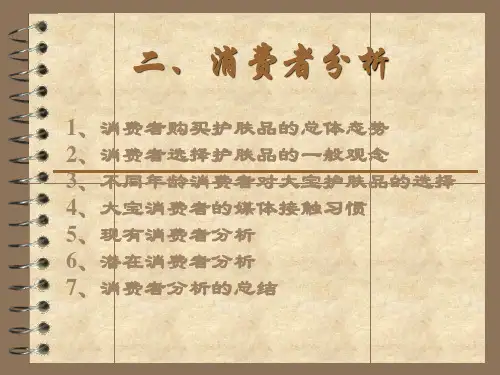 二、消费者分析
1、消费者购买护肤品的总体态势
2、消费者选择护肤品的一般观念
3、不同年龄消费者对大宝护肤品的选择
4、大宝消费者的媒体接触习惯
5、现有消费者分析
6、潜在消费者分析
7、消费者分析的总结